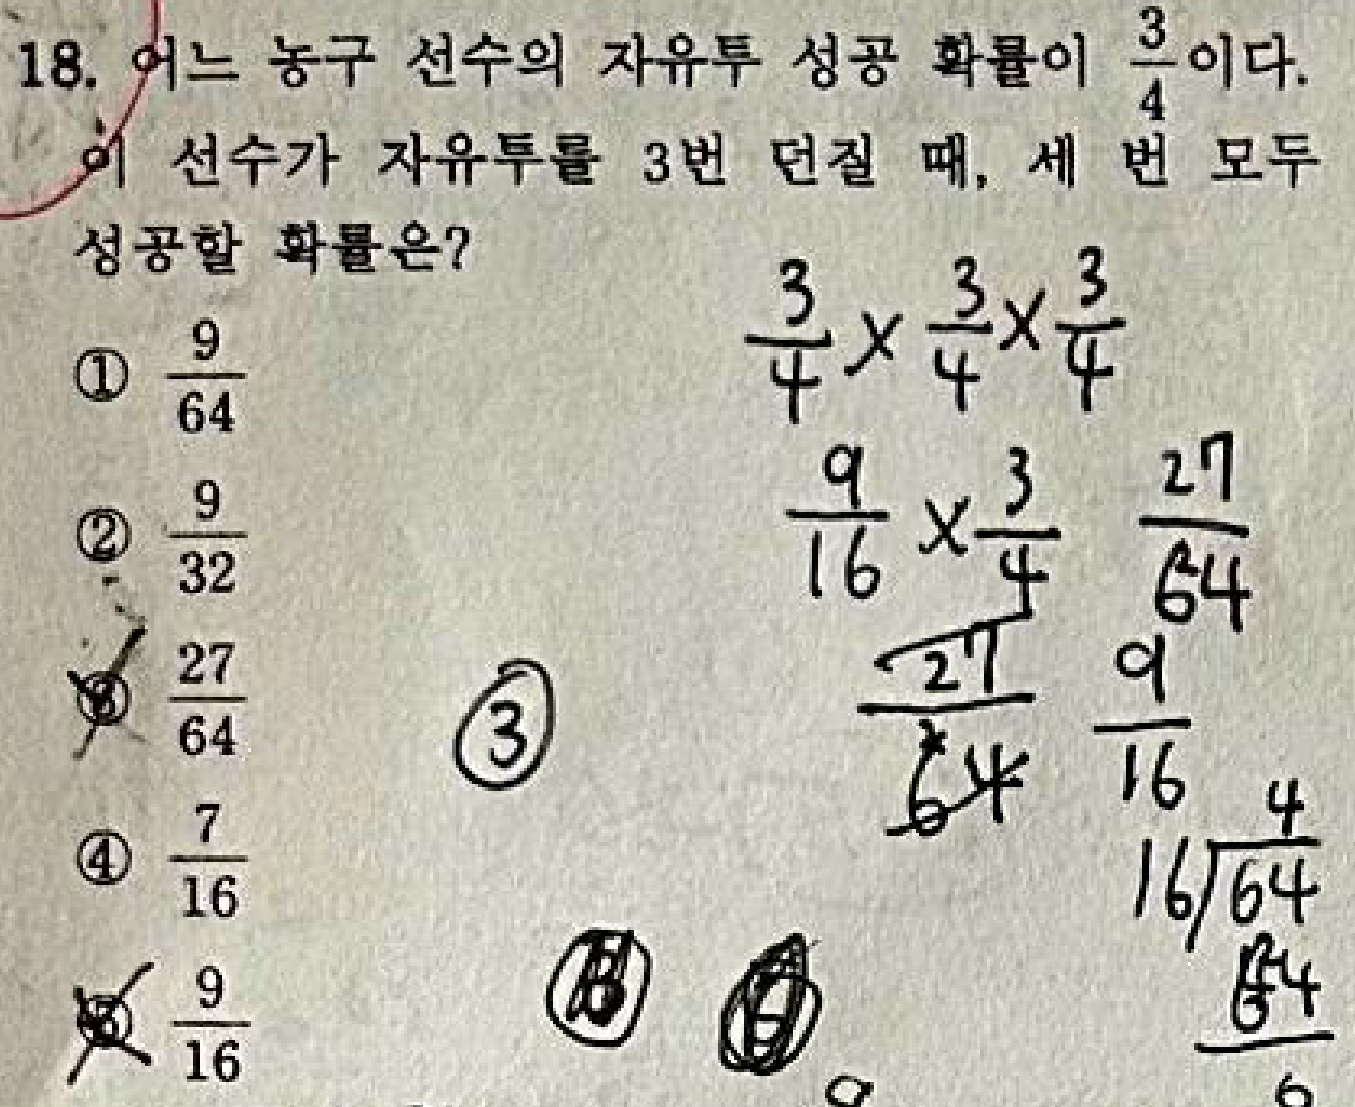 18. 어느 농구 선수의 자유투 성공 확률이 3/4이다.
이 선수가 자유투를 3번 던질 때, 세 번 모두
성공할 확률은?
3/4 × 3/4 × 3/4
① 9/64
9/16 × 3/4 27/64
② 9/32
③ 27/64
③
27/64 9/16
④ 7/16
4
16)64
64
0
⑤ 9/16